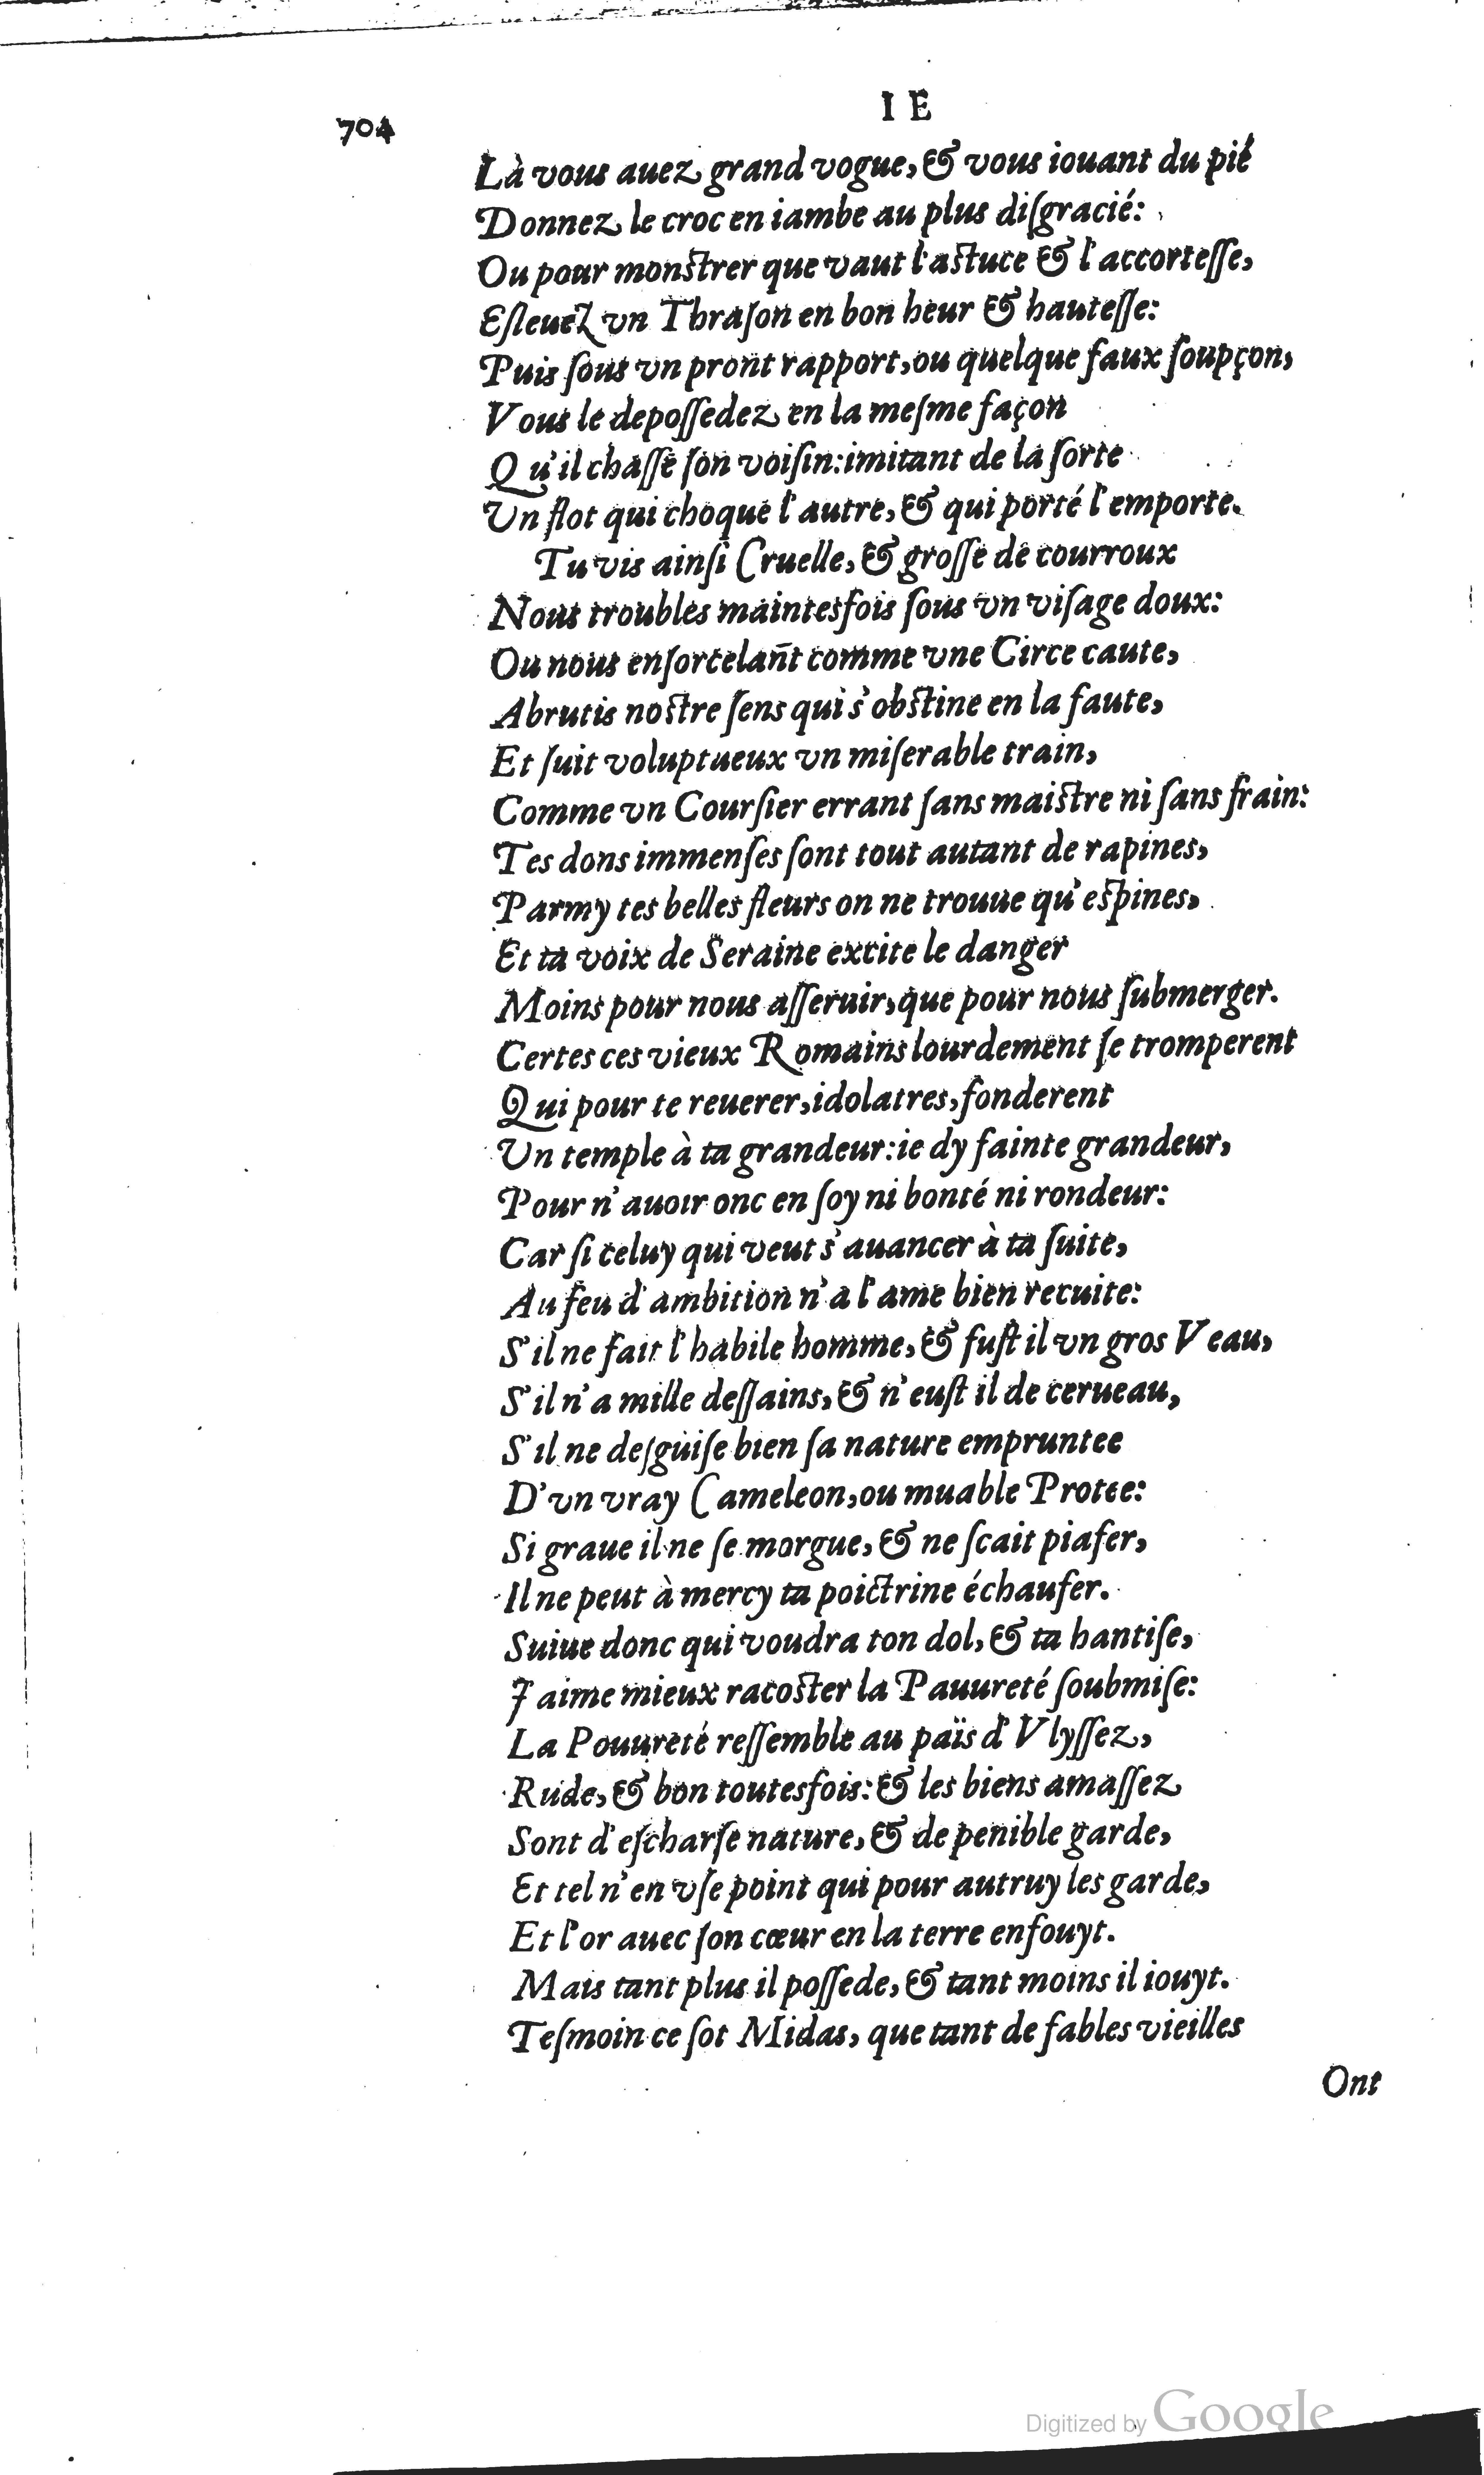 704
I E
Là vous auez grand vogue, & vous iouant du pié
Donnez le croc en iambe au plus diſgracié:
Ou pour monſtrer que vaut l'aſtuce & l'accorteſſe,
Eſleuez vn Thraſon en bon heur & hauteſſe:
Puis ſous vn pront rapport, ou quelque faux ſoupçon,
Vous le depoſſedez en la meſme façon
Qu'il chaſſe ſon voiſin: imitant de la ſorte
Un flot qui choque l'autre, & qui porté l'emporte.
Tu vis ainſi Cruelle, & groſſe de courroux
Nous troubles maintesfois ſous vn viſage doux:
Ou nous enſorcelant comme vne Circe caute,
Abrutis noſtre ſens qui s'obſtine en la faute,
Et ſuit voluptueux vn miſerable train,
Comme vn Courſier errant ſans maiſtre ni ſans frain:
Tes dons immenſes ſont tout autant de rapines,
Parmy tes belles fleurs on ne trouue qu'eſpines,
Et ta voix de Seraine excite le danger
Moins pour nous aſſeruir, que pour nous ſubmerger.
Certes ces vieux Romains lourdement ſe tromperent
Qui pour te reuerer, idolatres, fonderent
Un temple à ta grandeur: ie dy fainte grandeur,
Pour n'auoir onc en ſoy ni bonté ni rondeur:
Car ſi celuy qui veut s'auancer à ta ſuite,
Au feu d'ambition n'a l'ame bien recuite:
S'il ne fait l'habile homme, & fuſt il vn gros Veau,
S'il n'a mille deſſains, & n'euſt il de cerueau,
S'il ne deſguiſe bien ſa nature empruntee
D'vn vray Cameleon, ou muable Protee:
Si graue il ne ſe morgue, & ne ſcait piafer,
Il ne peut à mercy ta poictrine échaufer.
Suiue donc qui voudra ton dol, & ta hantiſe,
J'aime mieux racoſter la Pauureté ſoubmiſe:
La Pouureté reſſemble au païs d'Vlyſſez,
Rude, & bon toutesfois: & les biens amaſſez
Sont d'eſcharſe nature, & de penible garde,
Et tel n'en vſe point qui pour autruy les garde,
Et l'or auec ſon cœur en la terre enfouyt.
Mais tant plus il poſſede, & tant moins il iouyt.
Teſmoin ce ſot Midas, que tant de fables vieilles
Ont
Digitized by Google